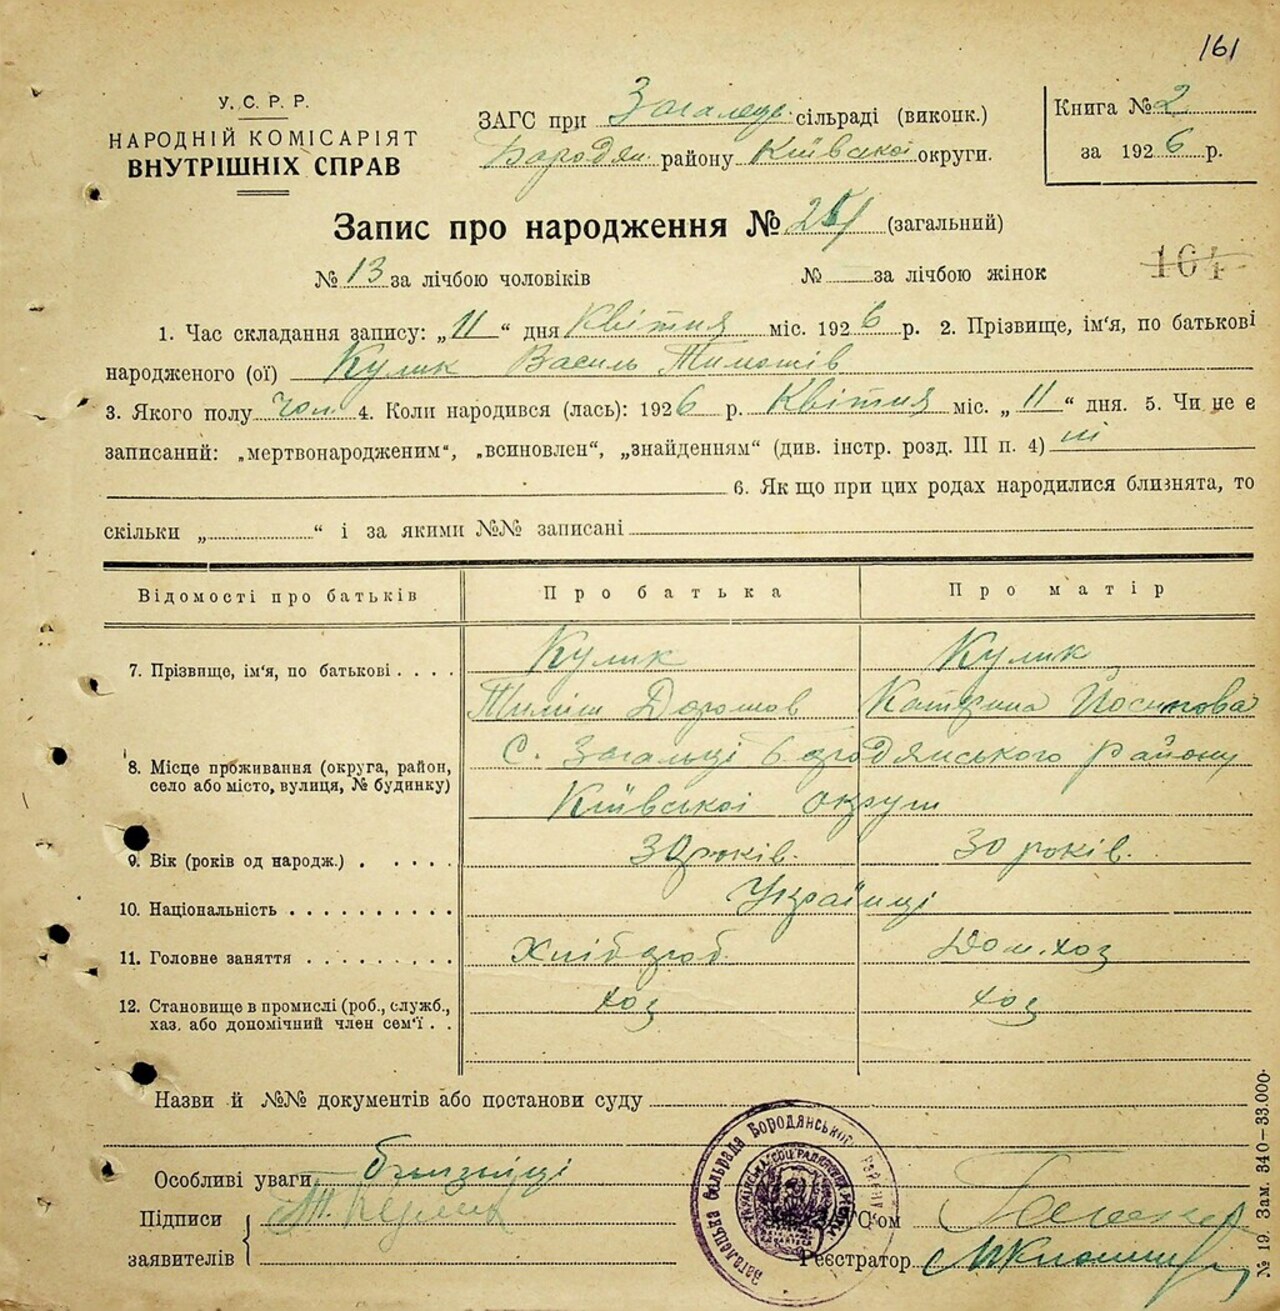 161
У. С. Р. Р.
НАРОДНІЙ КОМІСАРІЯТ
ВНУТРІШНІХ СПРАВ
ЗАГС при Загалець. сільраді (виконк.)
Бородян. району Київської округи.
Книга № 2
за 1926 р.
Запис про народження № (загальний)
№ 13 за лічбою чоловіків № за лічбою жінок
164
1. Час складання запису: „11“ дня Квітня міс. 1926 р. 2. Прізвище, ім'я, по батькові
народженого (ої) Кулик Василь Тимошів
3. Якого полу чол. 4. Коли народився (лась): 1926 р. Квітня міс. „11“ дня. 5. Чи не є
записаний: „мертвонародженим“, „всиновлен“, „знайденням“ (див. інстр. розд. III п. 4) ні
6. Як що при цих родах народилися близнята, то
скільки „ “ і за якими №№ записані
Відомості про батьків Про батька Про матір
7. Прізвище, ім'я, по батькові . . . . Кулик Кулик
Тиміш Дорошов Катерина Йосипова
8. Місце проживання (округа, район, село або місто, вулиця, № будинку) С. Загальці Бородянського району
Київської округи
9. Вік (років од народж.) . . . . . 30 років. 30 років.
10. Національність . . . . . . . . . . Українці
11. Головне заняття . . . . . . . . . Хлібороб Дом. хоз
12. Становище в промислі (роб., служб., хаз. або допомічний член сем'ї . . хоз хоз
Назви й №№ документів або постанови суду
Особливі уваги близніці
Підписи Т. Кулик
заявителів
Загалецька Сільрада Бородянського Району
ЗАГС'ом
Реєстратор
№ 19. Зам. 340—33.000.